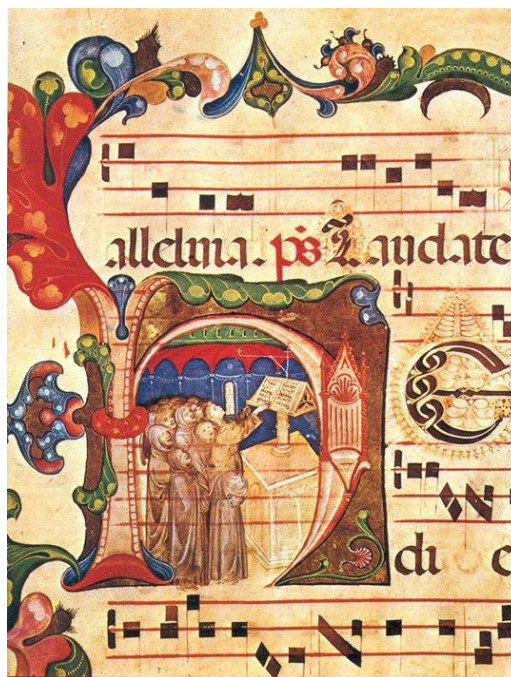 alleluia. ps̄ Laudate
H E
di